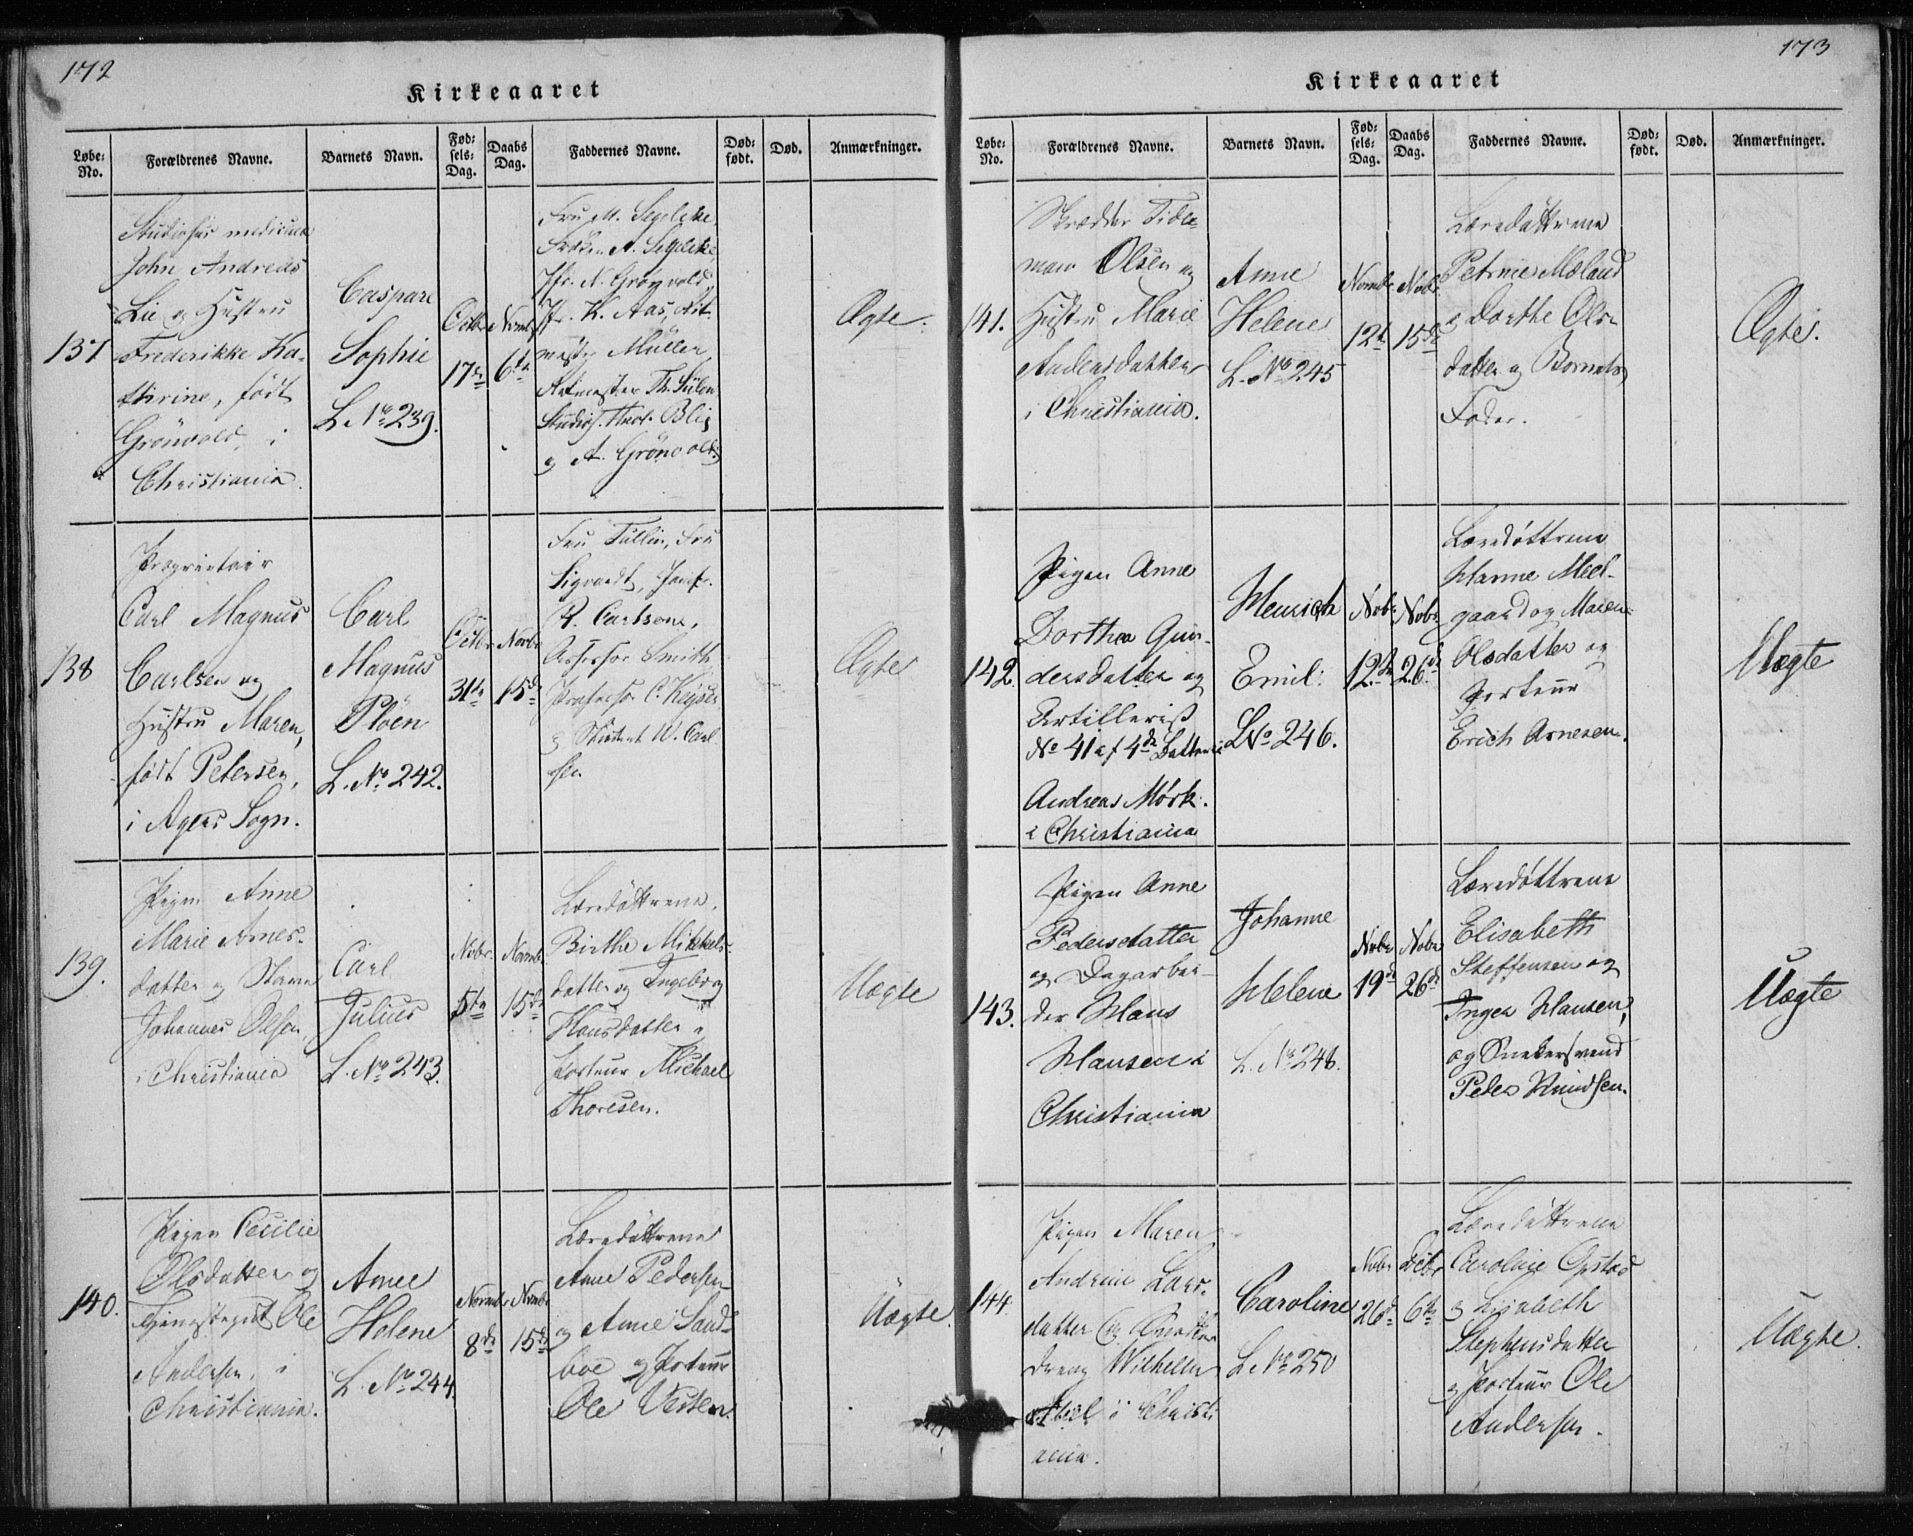 172
Kirkeaaret
Løbe-No.
Forældrenes Navne.
Barnets Navn.
Fødselsdag.
Daabs Dag.
Faddernes Navne.
Dødfødt.
Død.
Anmærkninger.
137
Studiosus medicinæ
John Andreas
Lie og Hustru
Frederikke Ka-
thrine, født
Grönvold, i
Christiania.
Caspara
Sophie
L. No 239.
Octbr
17de
Novbr
6te
Fru M. Segelcke,
Frøken A. Segelcke,
Jfr. N. Grönvold,
Jfr. K. Aas, Rit-
mester Müller,
Studios. Theol. Blix
og A. Grönvold
Ægte.
138
Proprietair
Carl Magnus
Carlsen og
Hustru Maren,
født Petersen,
i Agers Sogn.
Carl
Magnus
Plöen
L. No 242.
Octbr
31te
Novbr
15de
Fru Tullin, Fru
Sigvardt, Jomfr.
P. Carlsen,
Assessor Smith
Professor C. Keyser
og Student W. Carl-
sen
Ægte
139.
Pigen Anne
Marie Arnes-
datter og
Johannes Olsen,
i Christiania
Carl
Julius
L. No 243.
Novbr.
5te
Novbr.
15de
Læredöttrene,
Birthe Mikkels-
datter og Ingeborg
Hansdatter og
Porteur Michael
Thoresen.
Uægte
140.
Pigen Cecilie
Olsdatter og
Ole
Andersen, i
Christiania.
Anne
Helene
L. No 244
Novembr
8de
Novbr
15de
Læredöttrene
Anne Pedersen
og Anne Sand-
boe og Porteur
Ole Vesten.
Uægte.
173
Kirkeaaret
Løbe-No.
Forældrenes Navne.
Barnets Navn.
Fødselsdag.
Daabs Dag.
Faddernes Navne.
Dødfødt.
Død.
Anmærkninger.
141.
Skrædder Tide-
man Olsen og
Hustru Marie
Andersdatter
i Christiania.
Anne
Helene
L. No 245
Novbr
12te
Novbr
15de
Læredøttrene
Petrine Mæland
og Dorthe Ols-
datter og Barnets
Fader.
Ægte.
142.
Pigen Anne
Dorthea Gun-
dersdatter og
Artillerist
No 41 af 4de Batterie
Andreas Mörk.
i Christiania
Henrich
Emil.
L No 246.
Nobr
12te
Nobr
26de
Læredøttrene
Hanne Miel-
gaard og Maren
Olsdatter og
Porteur
Erich Arnesen.
Uægte
143.
Pigen Anne
Pedersdatter
og Dagarbei-
der Hans
Hansen i
Christiania
Johanne
Helene
L. No 248.
Nobr
19de
Nobr
26de
Læredøttrene
Elisabeth
Steffensen og
Inger Hansen,
og Snekkersvend
Peder Knudsen.
Uægte
144.
Pigen Maren
Andrine Lars-
datter og
dreng Wilhelm
Abel i Christi-
ania.
Caroline
L No 250
Nobr
26de
Decbr
6te
Læredöttrene
Caroline Opstad
og Lisabeth
Stephensdatter
og Porteur Ole
Andersen.
Uægte.